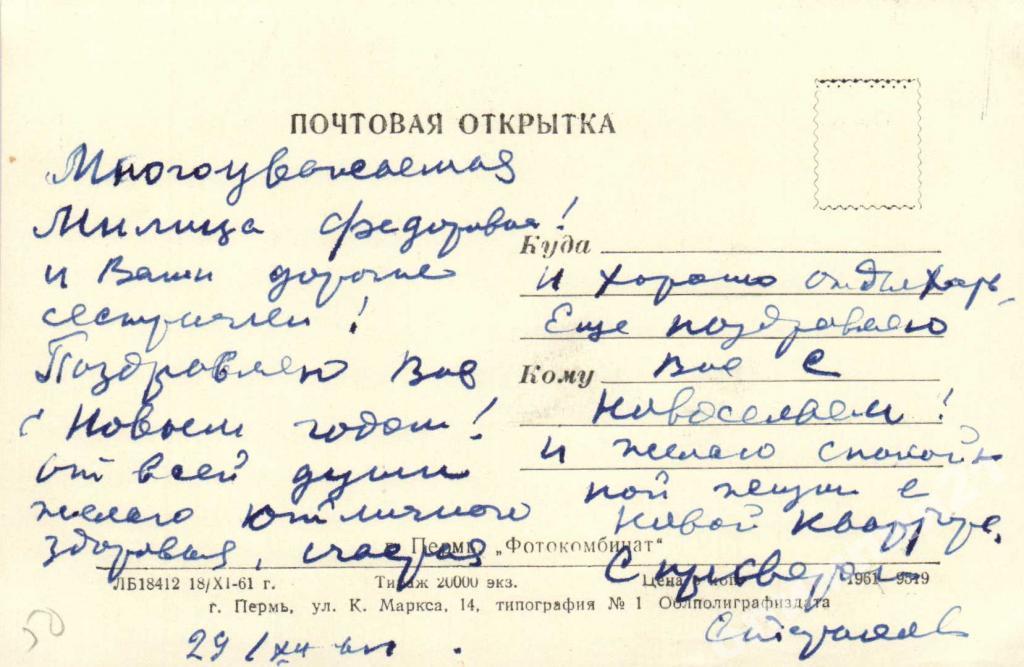 ПОЧТОВАЯ ОТКРЫТКА
Многоуважаемая
Милица Федоровна!
и Ваши дорогие
сестрички!
Поздравляю Вас
с Новым годом!
от всей души
желаю отличного
здоровья, счастья
Куда
и хорошо отдыхать.
Еще поздравляю
Кому Вас с
Новосельем!
и желаю спокой
ной жизни в
новой квартире.
С приветом
г. Пермь, „Фотокомбинат"
ЛБ18412 18/XI-61 г. Тираж 20000 экз. Цена коп 1961
г. Пермь, ул. К. Маркса, 14, типография № 1 Облполиграфиздата
29/XII
50